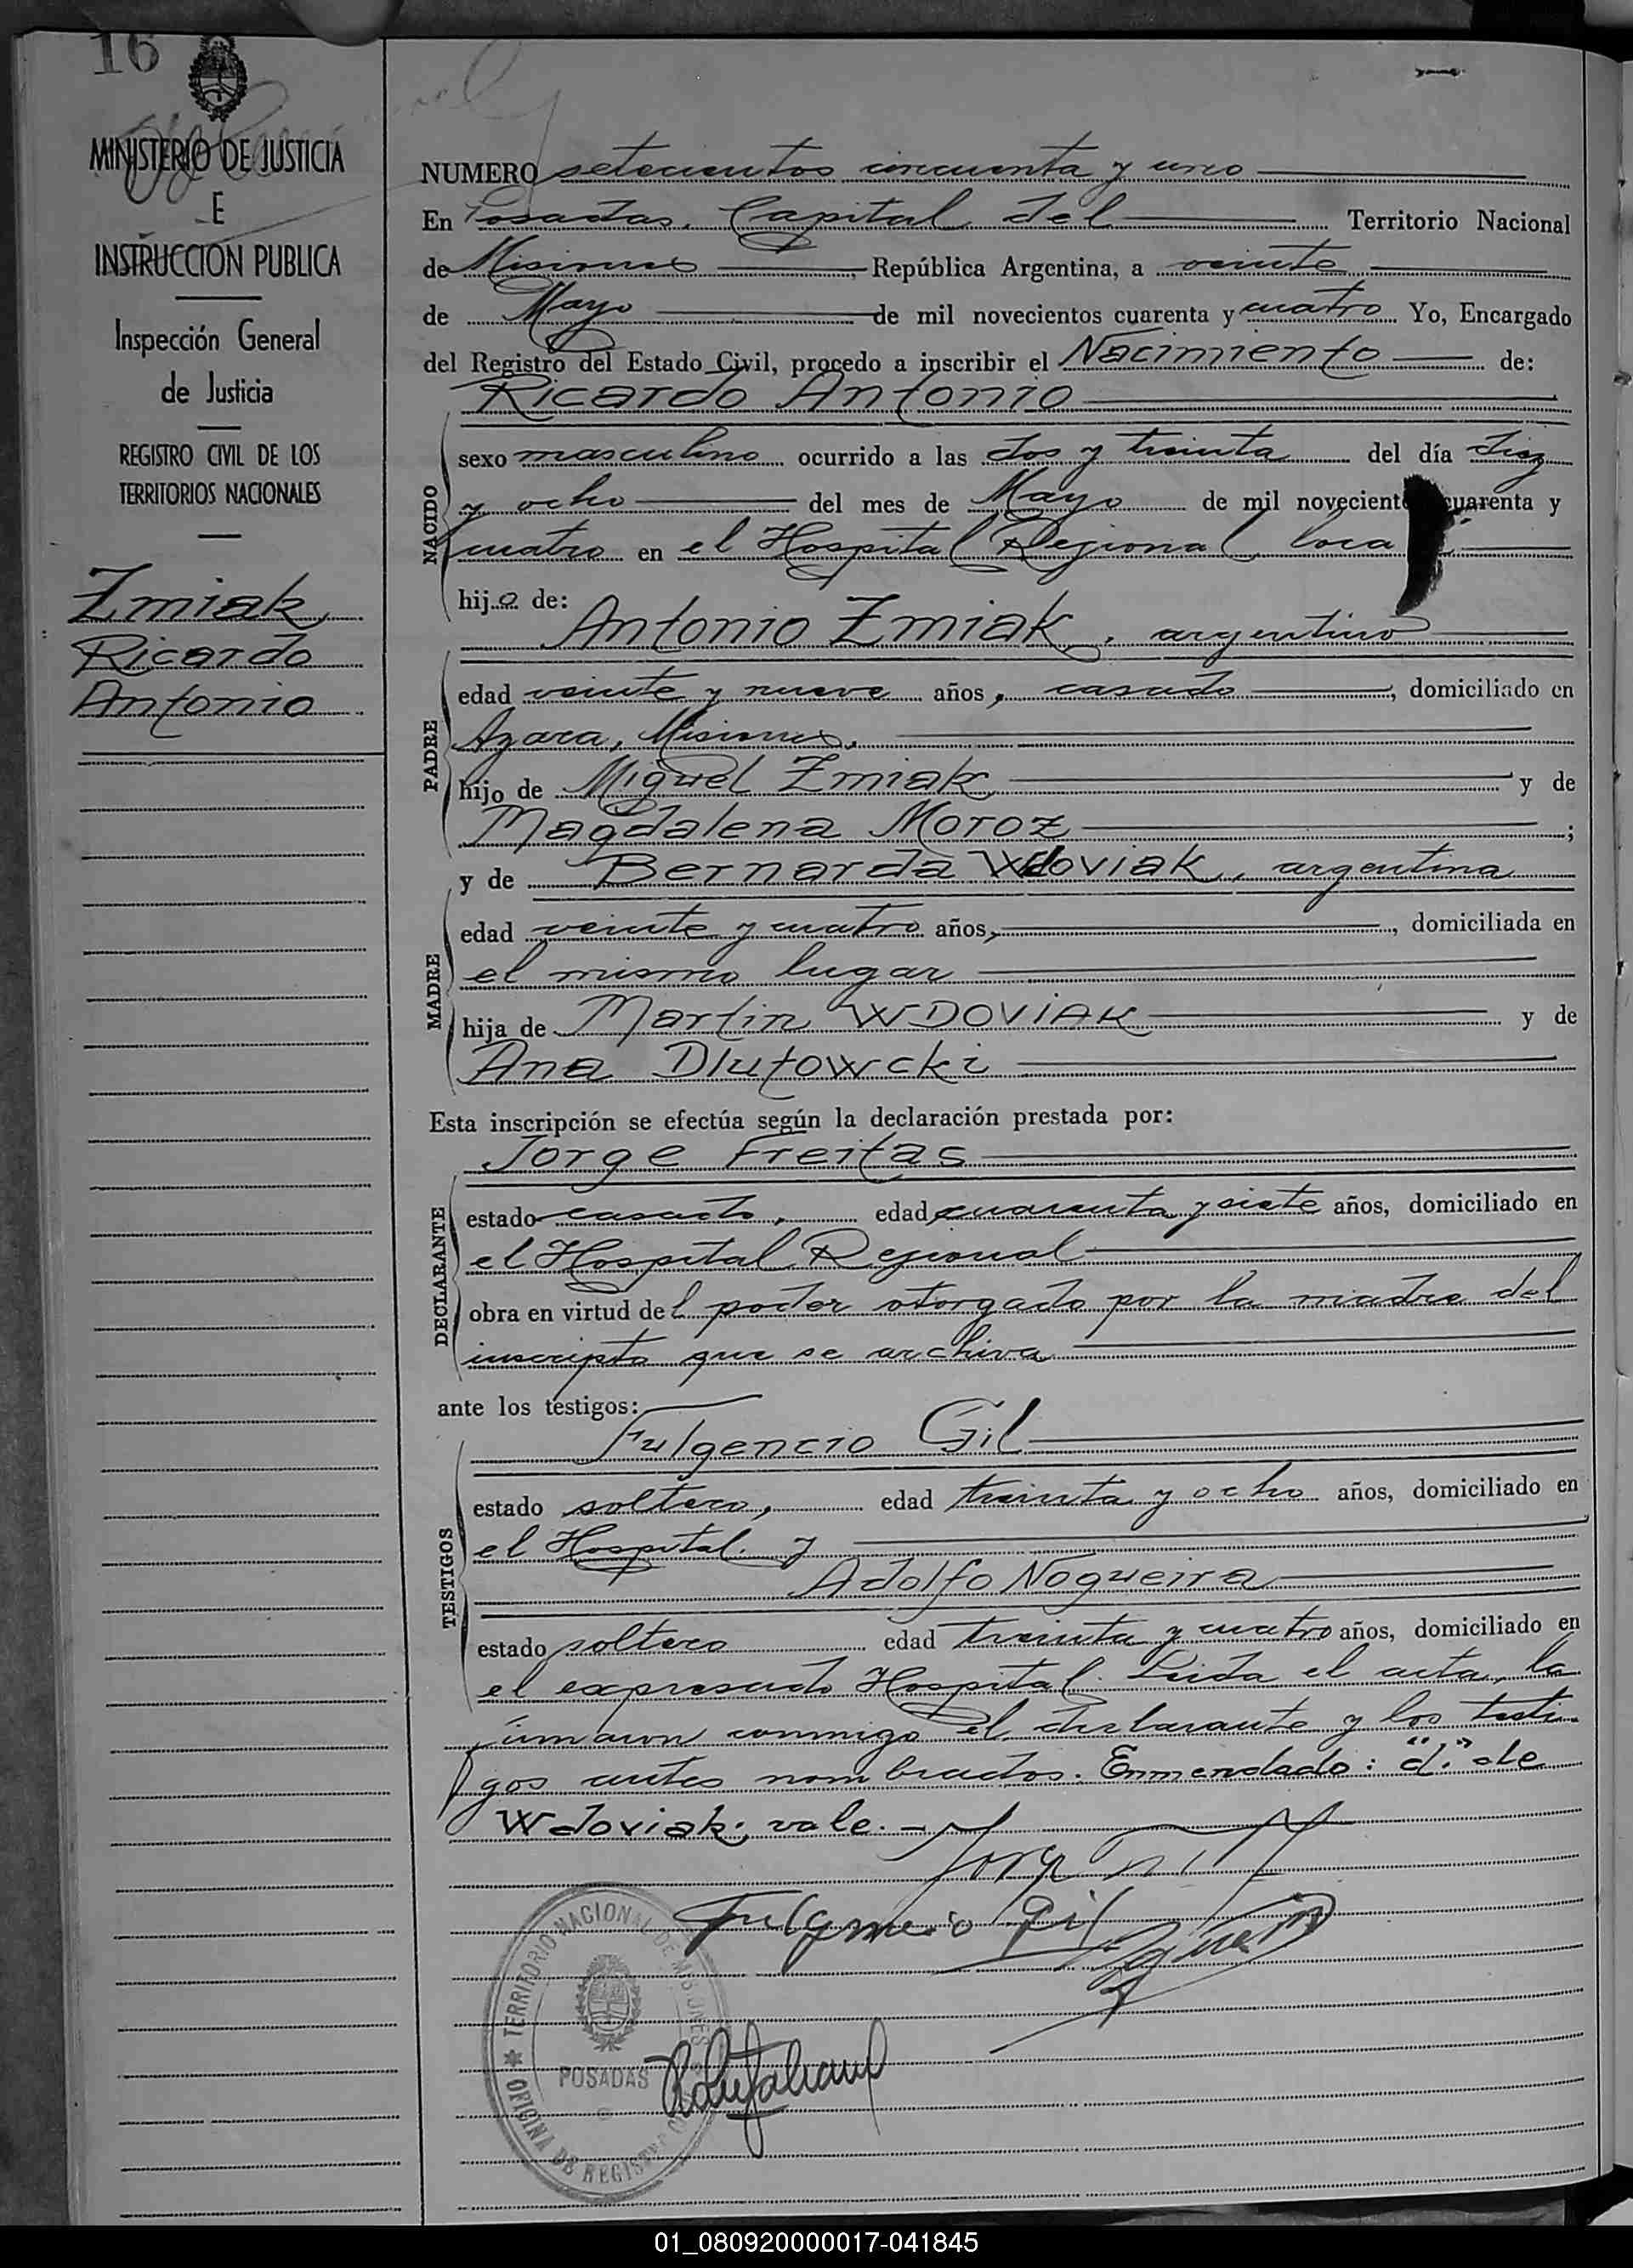 16
MINISTERIO DE JUSTICIA
E
INSTRUCCION PUBLICA
Inspección General
de Justicia
REGISTRO CIVIL DE LOS
TERRITORIOS NACIONALES
Zmiak,
Ricardo
Antonio
NUMERO setecientos cincuenta y uno
En Posadas, Capital del Territorio Nacional
de Misiones, República Argentina, a veinte
de Mayo de mil novecientos cuarenta y cuatro Yo, Encargado
del Registro del Estado Civil, procedo a inscribir el Nacimiento de:
Ricardo Antonio
NACIDO
sexo masculino ocurrido a las dos y treinta del día diez
y ocho del mes de Mayo de mil novecientos cuarenta y
cuatro en el Hospital Regional local
hijo de:
Antonio Zmiak, argentino
PADRE
edad veinte y nueve años, casado, domiciliado en
Azara, Misiones.
hijo de Miguel Zmiak y de
Magdalena Moroz;
y de Bernarda Wdoviak, argentina
MADRE
edad veinte y cuatro años, domiciliada en
el mismo lugar
hija de Martin WDOVIAK y de
Ana Dlutowcki
Esta inscripción se efectúa según la declaración prestada por:
Jorge Freitas
DECLARANTE
estado casado, edad cuarenta y siete años, domiciliado en
el Hospital Regional
obra en virtud del poder otorgado por la madre del
inscripto que se archiva
ante los testigos:
Fulgencio Gil
TESTIGOS
estado soltero, edad treinta y ocho años, domiciliado en
el Hospital y
Adolfo Nogueira
estado soltero edad treinta y cuatro años, domiciliado en
el expresado Hospital. Leida el acta, la
firmaron conmigo el declarante y los testi-
gos antes nombrados. Enmendado: "d." de
Wdoviak: vale.-
Fulgencio Gil
TERRITORIO NACIONAL DE MISIONES
POSADAS
OFICINA DE REGISTRO
01_080920000017-041845